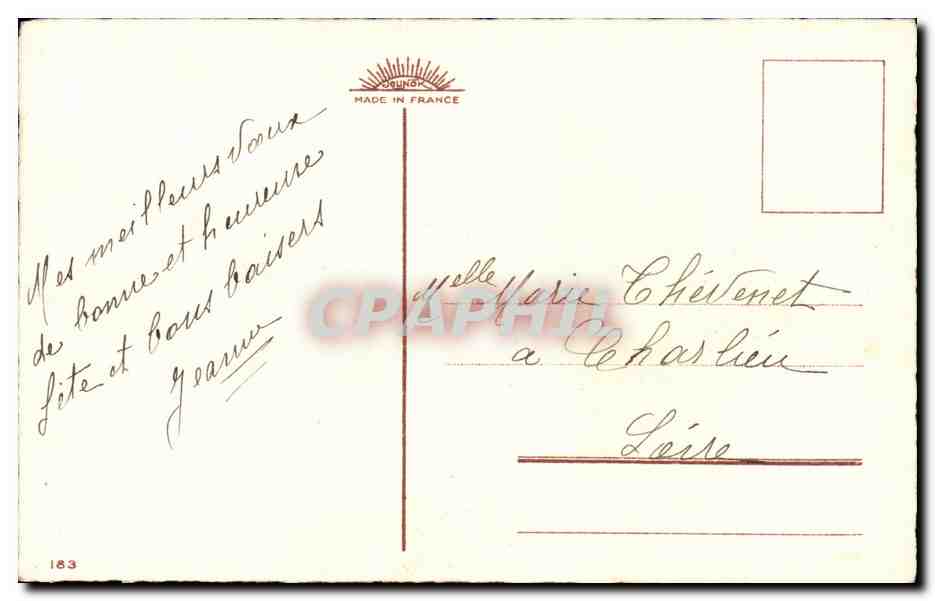 Mes meilleurs Vœux
de bonne et heureuse
fête et bons baisers
Jeanne
JOUNOK
MADE IN FRANCE
CPAPHIL
Melle Marie Thévenet
a Charlieu
Loire
183